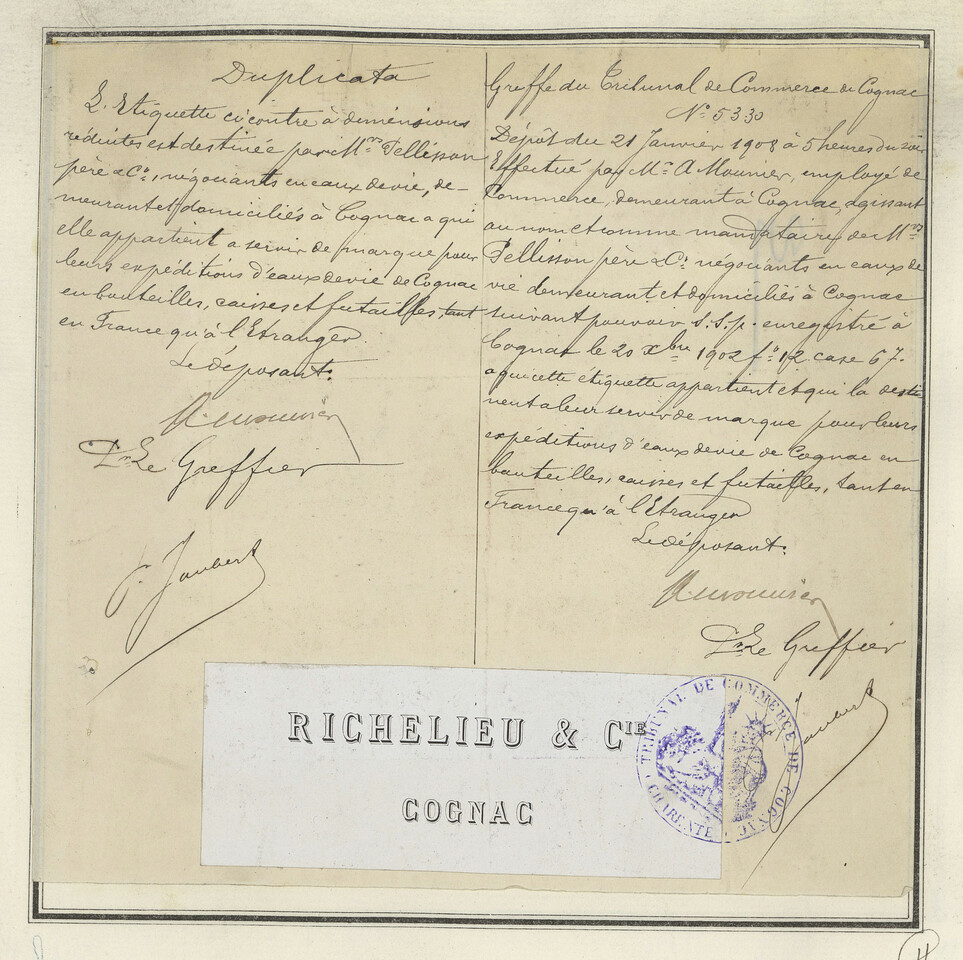 Duplicata
L'Etiquette ci contre à dimensions
réduites est destinée par Mrs Pellisson
père & Cie, négociants en eaux de vie, de-
meurant et domiciliés à Cognac a qui
elle appartient a servir de marque pour
leurs expéditions d'eaux de vie de Cognac
en bouteilles, caisses et futailles, tant
en France qu'à l'Etranger.
Le déposant:
A. Mounier
Pr Le Greffier
P. Jaubert
Greffe du Tribunal de Commerce de Cognac
No 5330
Dépôt du 21 Janvier 1908 à 5 heures du soir
Effectué par Mr A Mounier, employé de
Commerce, demeurant à Cognac, agissant
au nom et comme mandataire de Mrs
Pellisson père & Cie négociants en eaux de
vie demeurant et domiciliés à Cognac
suivant pouvoir s.s.p. enregistré à
Cognac le 20 Xbre 1902 fo 12 case 67.
a qui cette étiquette appartient et qui la desti
nent a leur servir de marque pour leurs
expéditions d'eaux de vie de Cognac en
bouteilles, caisses et futailles, tant en
France qu'à l'Etranger
Le déposant:
A. Mounier
Pr Le Greffier
Jaubert
RICHELIEU & CIE
COGNAC
TRIBUNAL DE COMMERCE DE COGNAC
CHARENTE
H